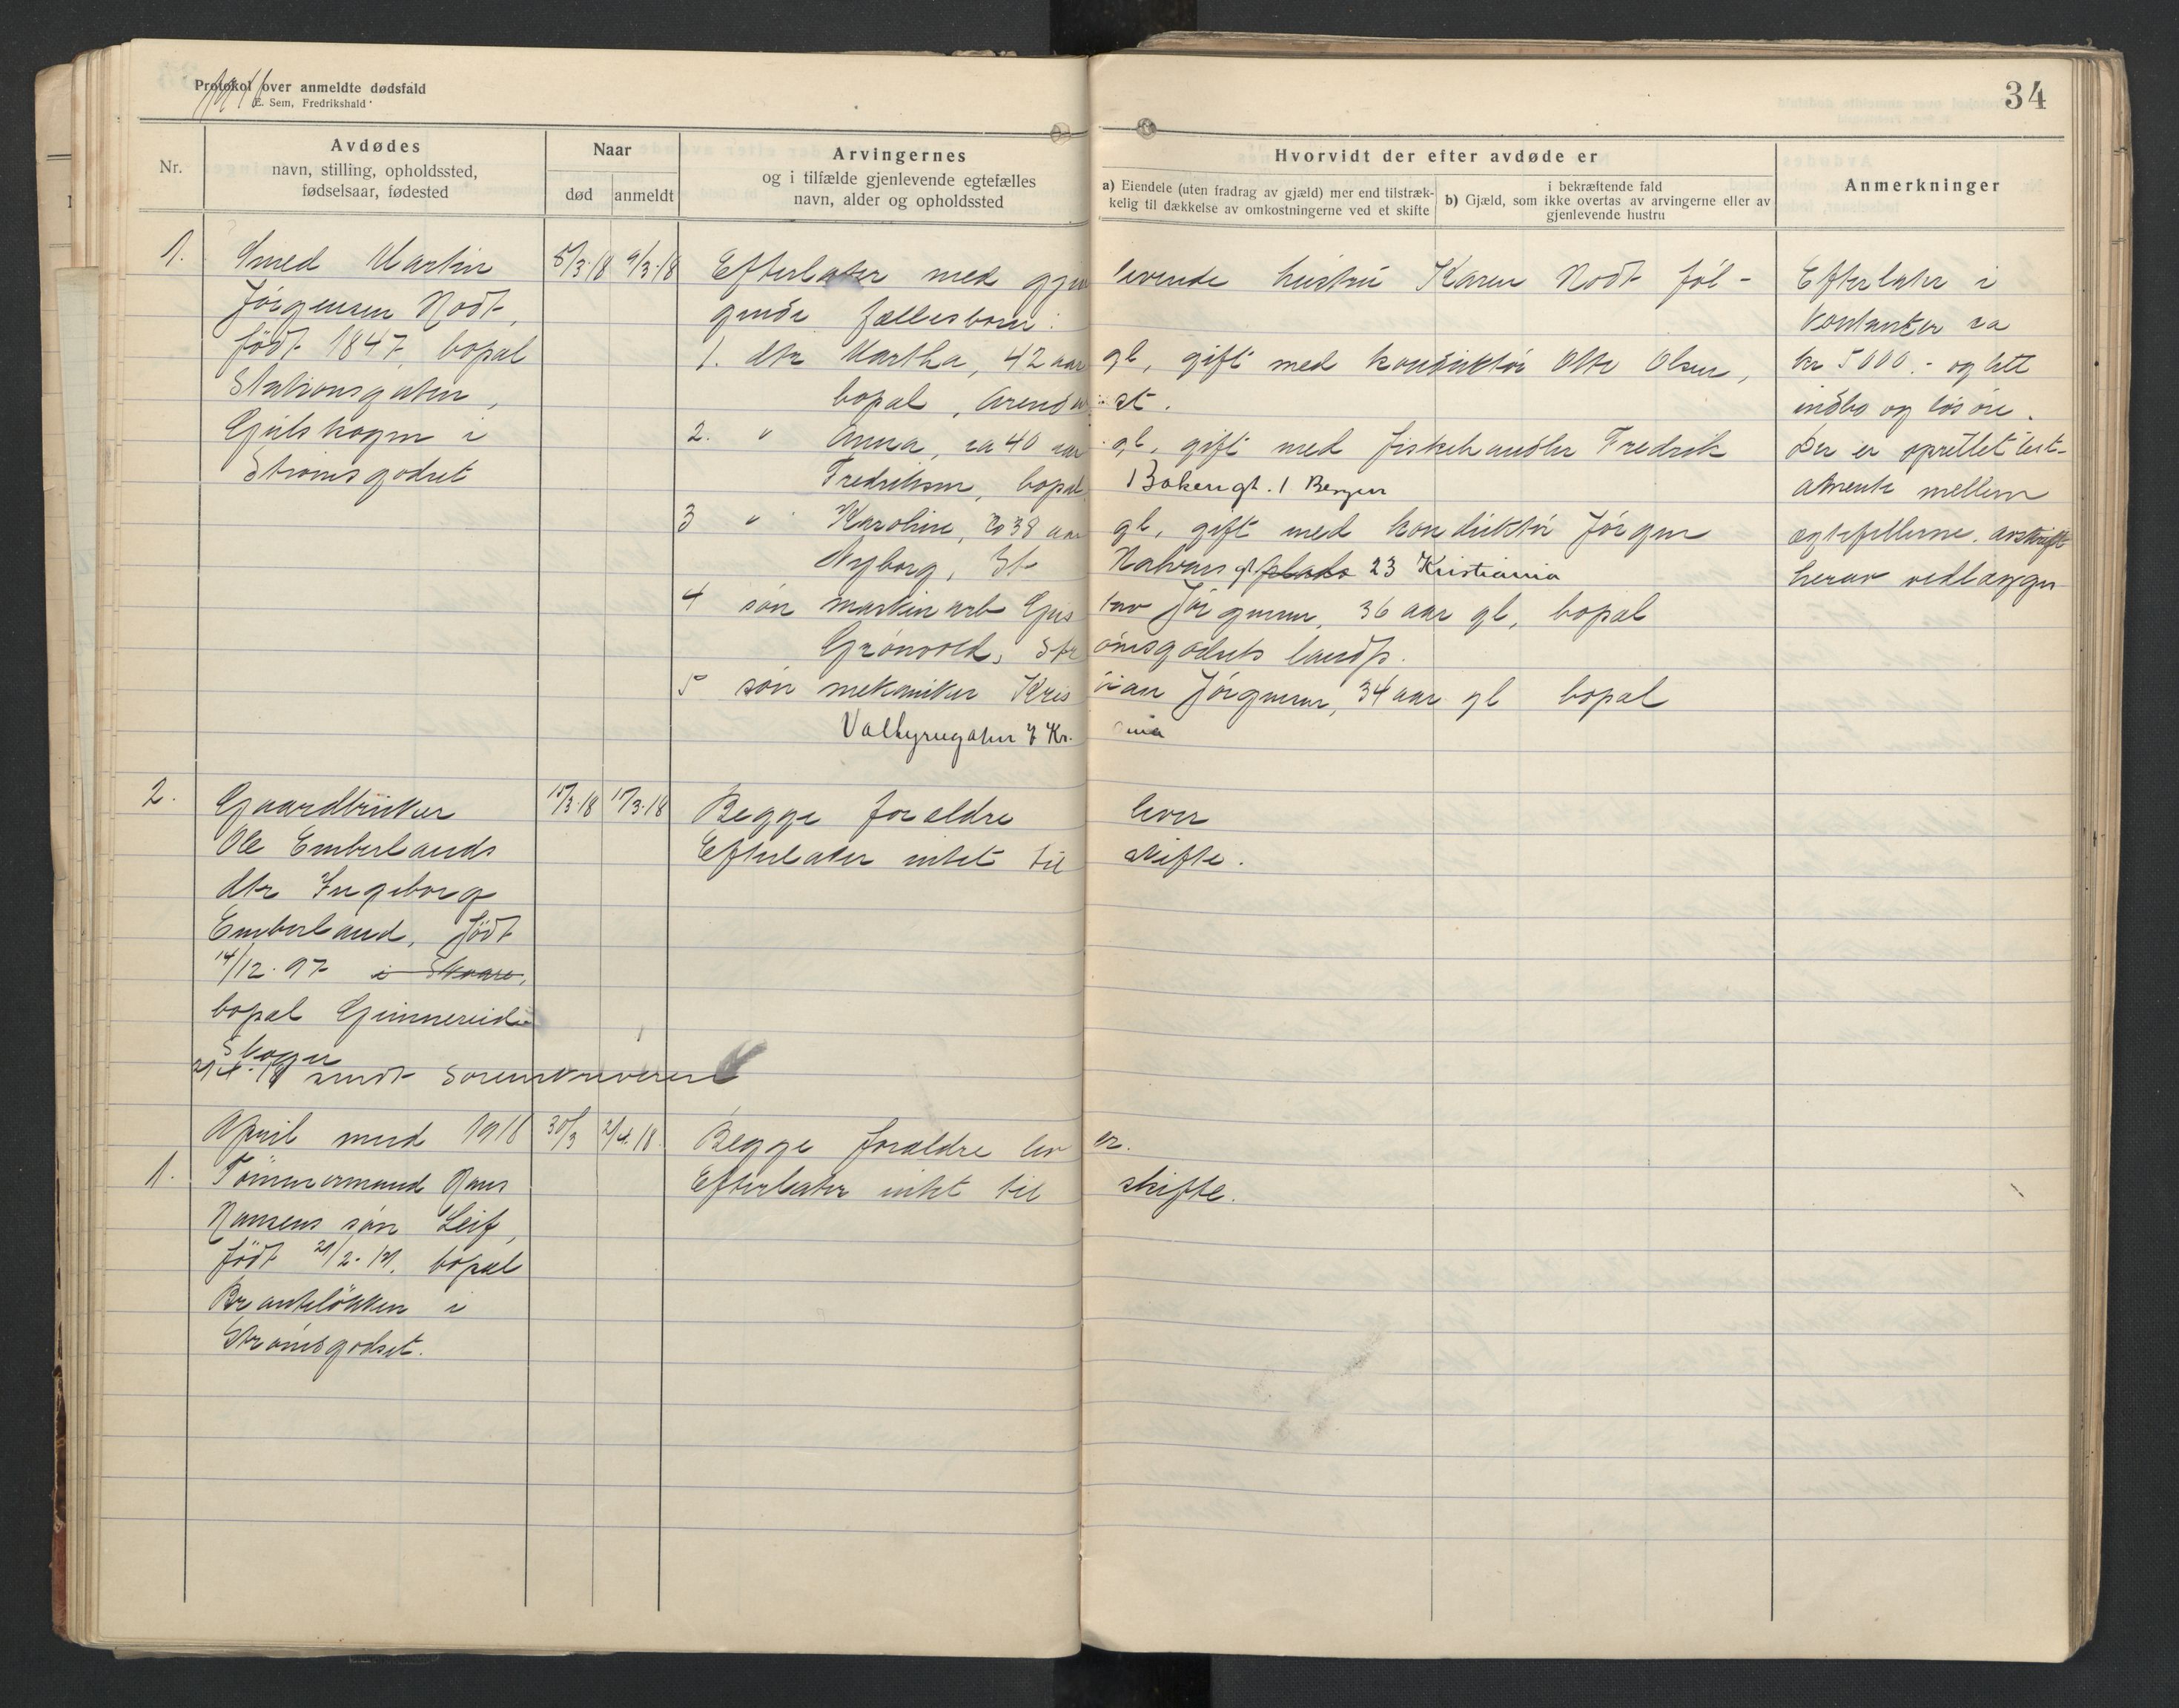 Protokol over anmeldte dødsfald
E. Sem, Fredrikshald
34
Nr.
Avdødes
navn, stilling, opholdssted,
fødselsaar, fødested
Naar
død
anmeldt
Arvingernes
og i tilfælde gjenlevende egtefælles
navn, alder og opholdssted
Hvorvidt der efter avdøde er
a) Eiendele (uten fradrag av gjæld) mer end tilstræk-
kelig til dækkelse av omkostningerne ved et skifte
i bekræftende fald
b) Gjæld, som ikke overtas av arvingerne eller av
gjenlevende hustru
Anmerkninger
1.
Smed Martin
Jörgensen Nodt,
födt 1847, bopæl
Stationsgaten,
Gulskogen i
Strømsgodset
8/3.18 9/3.18
Efterlater med gjenlevende hustru Karen Nodt föl-
gende fællesbörn:
1. dtr Martha, 42 aar gl, gift med konduktör Otto Olsen,
bopæl, Arendal st.
2. " Anna, ca 40 aar gl, gift med fiskehandler Fredrik
Fredriksen, bopæl 1 Bakerigt. 1 Bergen
3 " Karoline, 38 aar gl, gift med konduktör Jörgen
Nyborg, St Halvars gt plads 23 Kristiania
4 sön maskinarb Gustav Jörgensen, 36 aar gl, bopæl
Grönvold, Strömsgodsets lands.
5 sön mekaniker Kristian Jörgensen, 34 aar gl bopæl
Valkyriegaten 7 Kr.ania
Efterlater i
kontanter ca
kr 5000.- og litt
indbo og lösöre.
Der er oprettet test-
amente mellem
egtefellerne. avskrift
herav vedlægges
2.
Gaardbruker
Ole Emberlands
dtr Ingeborg
Emberland, födt
14/12.97 i Skoger,
bopæl Gunnereid
Skoger
15/3.18 15/3.18
Begge forældre lever
Efterlater intet til skifte.
2/4.18 sendt sorenskriveren
April mnd 1918
30/3 2/4.18
Begge forældre lever.
Efterlater intet til skifte.
1.
Tömmermand Hans
Hansens sön Leif,
födt 21/2-17, bopæl
Brantelökken i
Strömsgodset.